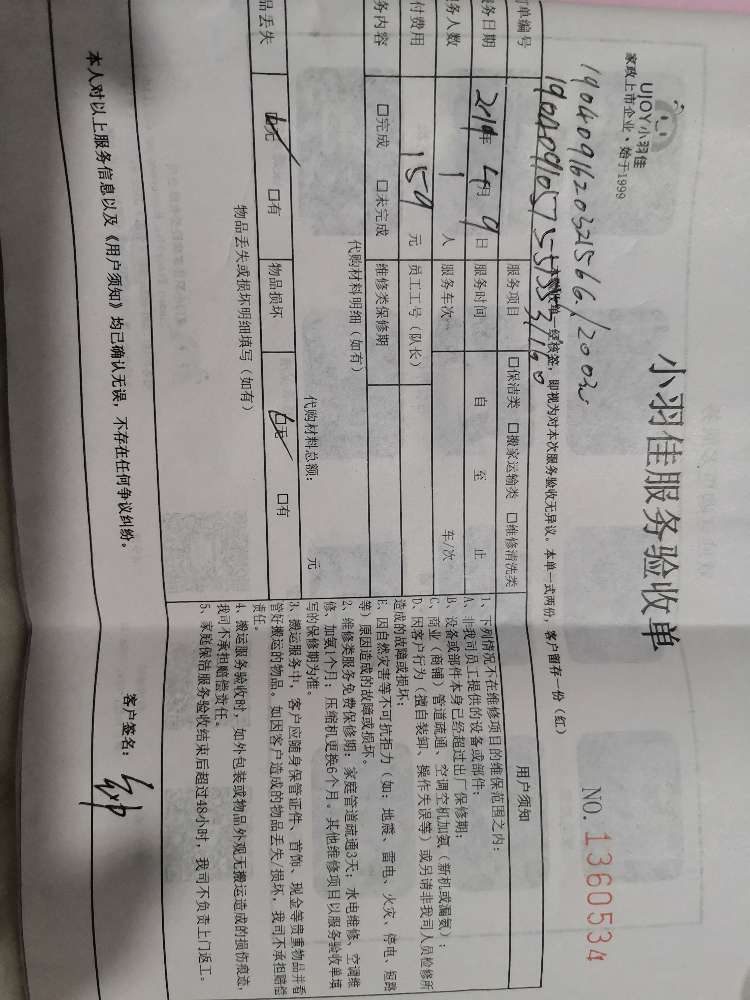 UJOY小羽佳
家政上市企业·始于1999
小羽佳服务验收单
NO. 1360534
1904091620321566/200元
本验收单一经核签，即视为对本次服务验收无异议。本单一式两份，客户留存一份（红）
单编号
服务项目 □保洁类 □搬家运输类 □维修清洗类
务日期 2019年 4月 9日 服务时间 自 至 止
务人数 1 人 服务车次 车/次
付费用 159 元 员工工号（队长）
务内容 □完成 □未完成 维修类保修期
代购材料明细（如有）
代购材料总额： 元
品丢失 □无 □有 物品损坏 □无 □有
物品丢失或损坏明细填写（如有）
用户须知
1、下列情况不在维修项目的维保范围之内：
A、非我司员工提供的设备或部件；
B、设备或部件本身已经超过出厂保修期；
C、商业（商铺）管道疏通、空调空机加氨（新机或漏氨）；
D、因客户行为（擅自装卸、操作失误等）或另请非我司人员检修所
造成的故障或损坏；
E、因自然灾害等不可抗拒力（如：地震、雷电、火灾、停电、短路
等）原因造成的故障或损坏。
2、维修类服务免费保修期：家庭管道疏通3天；水电维修、空调维
修、加氨1个月；压缩机更换6个月。其他维修项目以服务验收单填
写的保修期为准。
3、搬运服务中，客户应随身保管证件、首饰、现金等贵重物品并看
管好搬运的物品。如因客户造成的物品丢失/损坏，我司不承担赔偿
责任。
4、搬运服务验收时，如外包装或物品外观无搬运造成的损伤痕迹，
我司不承担赔偿责任。
5、家庭保洁服务验收结束后超过48小时，我司不负责上门返工。
本人对以上服务信息以及《用户须知》均已确认无误，不存在任何争议纠纷。
客户签名：